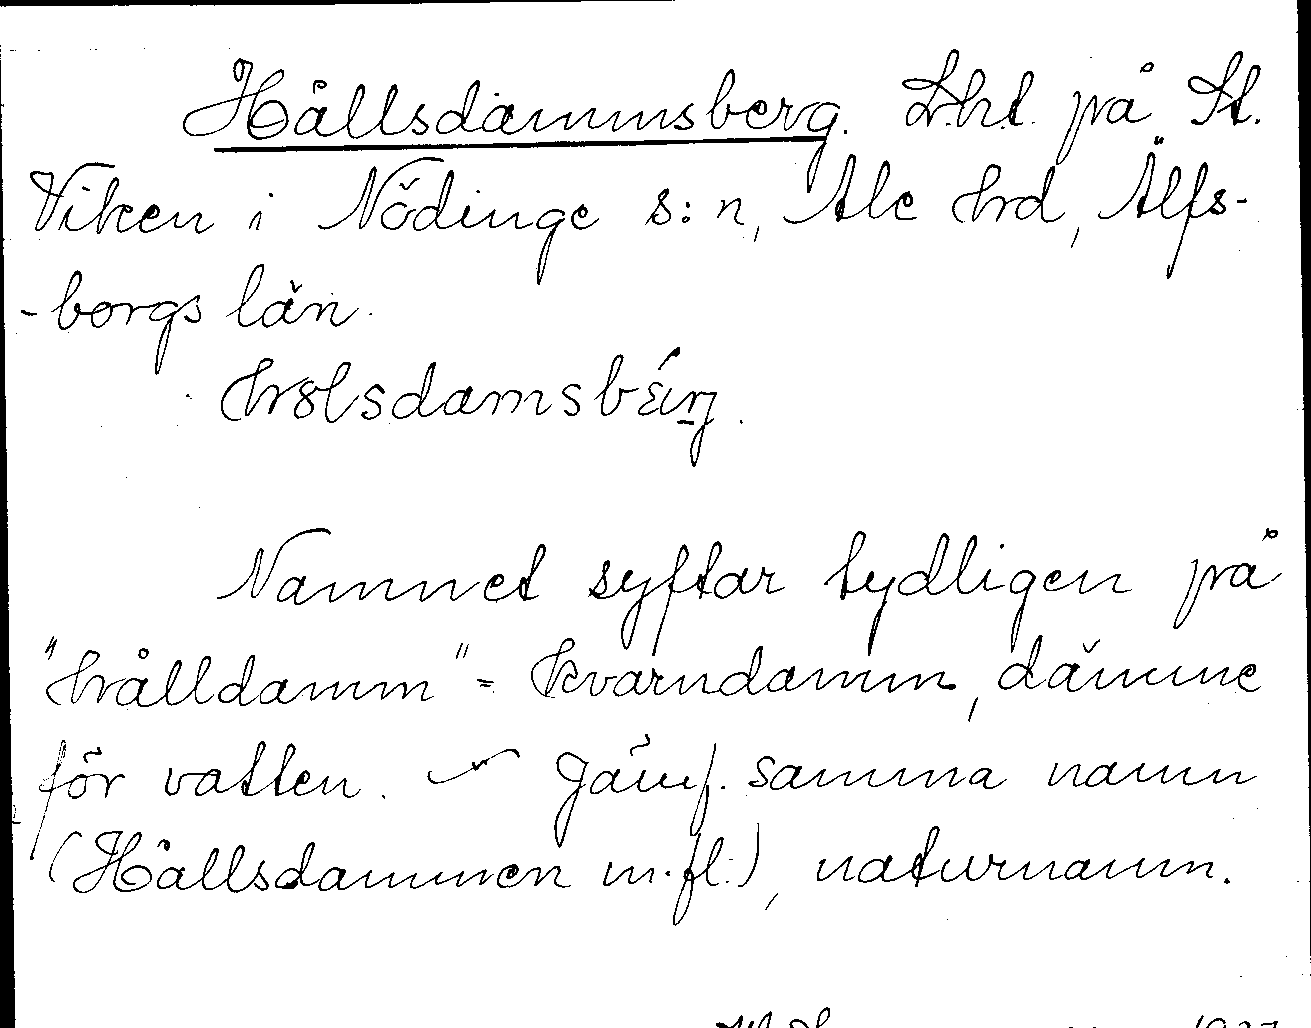 Hållsdammsberg. L.h.t. på St.
Viken i Nödinge s:n, Ale hrd, Älfs-
-borgs län.
Namnet syftar tydligen på
"hålldamm" = kvarndamm, dämme
för vatten. — Jämf. samma namn
(Hållsdammen m.fl.), naturnamn.